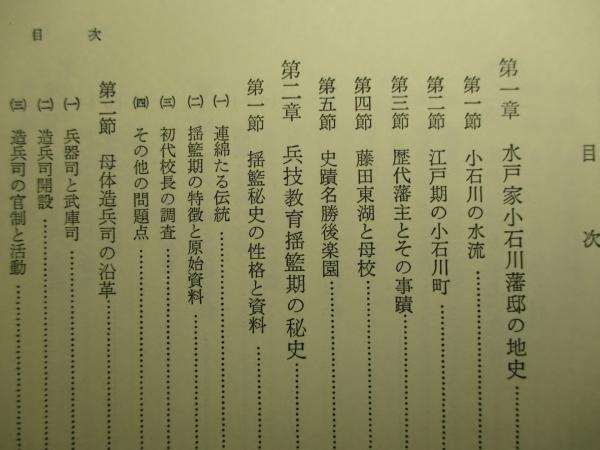 目次
第一章 水戸家小石川藩邸の地史………
第一節 小石川の水流………
第二節 江戸期の小石川町………
第三節 歴代藩主とその事蹟………
第四節 藤田東湖と母校………
第五節 史蹟名勝後楽園………
第二章 兵技教育揺籃期の秘史………
第一節 揺籃秘史の性格と資料………
㈠ 連綿たる伝統………
㈡ 揺籃期の特徴と原始資料………
㈢ 初代校長の調査………
㈣ その他の問題点………
第二節 母体造兵司の沿革………
㈠ 兵器司と武庫司………
㈡ 造兵司開設………
㈢ 造兵司の官制と活動………
目次